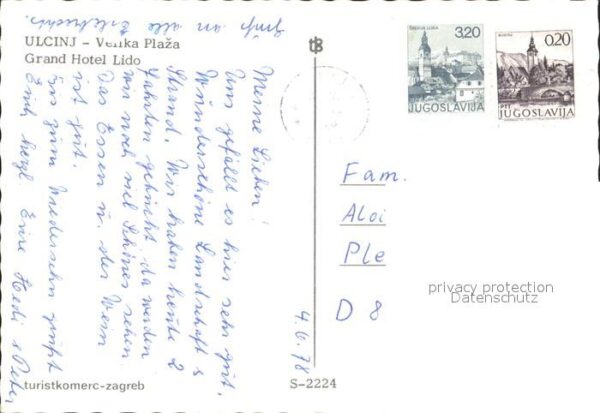 ULCINJ – Velika Plaža
Grand Hotel Lido
Meine Lieben!
Uns gefällt es hier sehr gut.
Wunderschöne Landschaft u.
Strand. Wir haben heute 2
Fahrten gebucht, da werden
wir noch viel Schönes sehen.
Das Essen u. der Wein
ist gut.
Bis zum Wiedersehn grüßt
Euch herzl. Eure Hedi u Peter
Gruß an alle
4.6.78
turistkomerc-zagreb
S-2224
ŠKOFJA LOKA
3,20
JUGOSLAVIJA
BOHINJ
0,20
PTT
JUGOSLAVIJA
Fam.
Aloi
Ple
D 8
privacy protection
Datenschutz